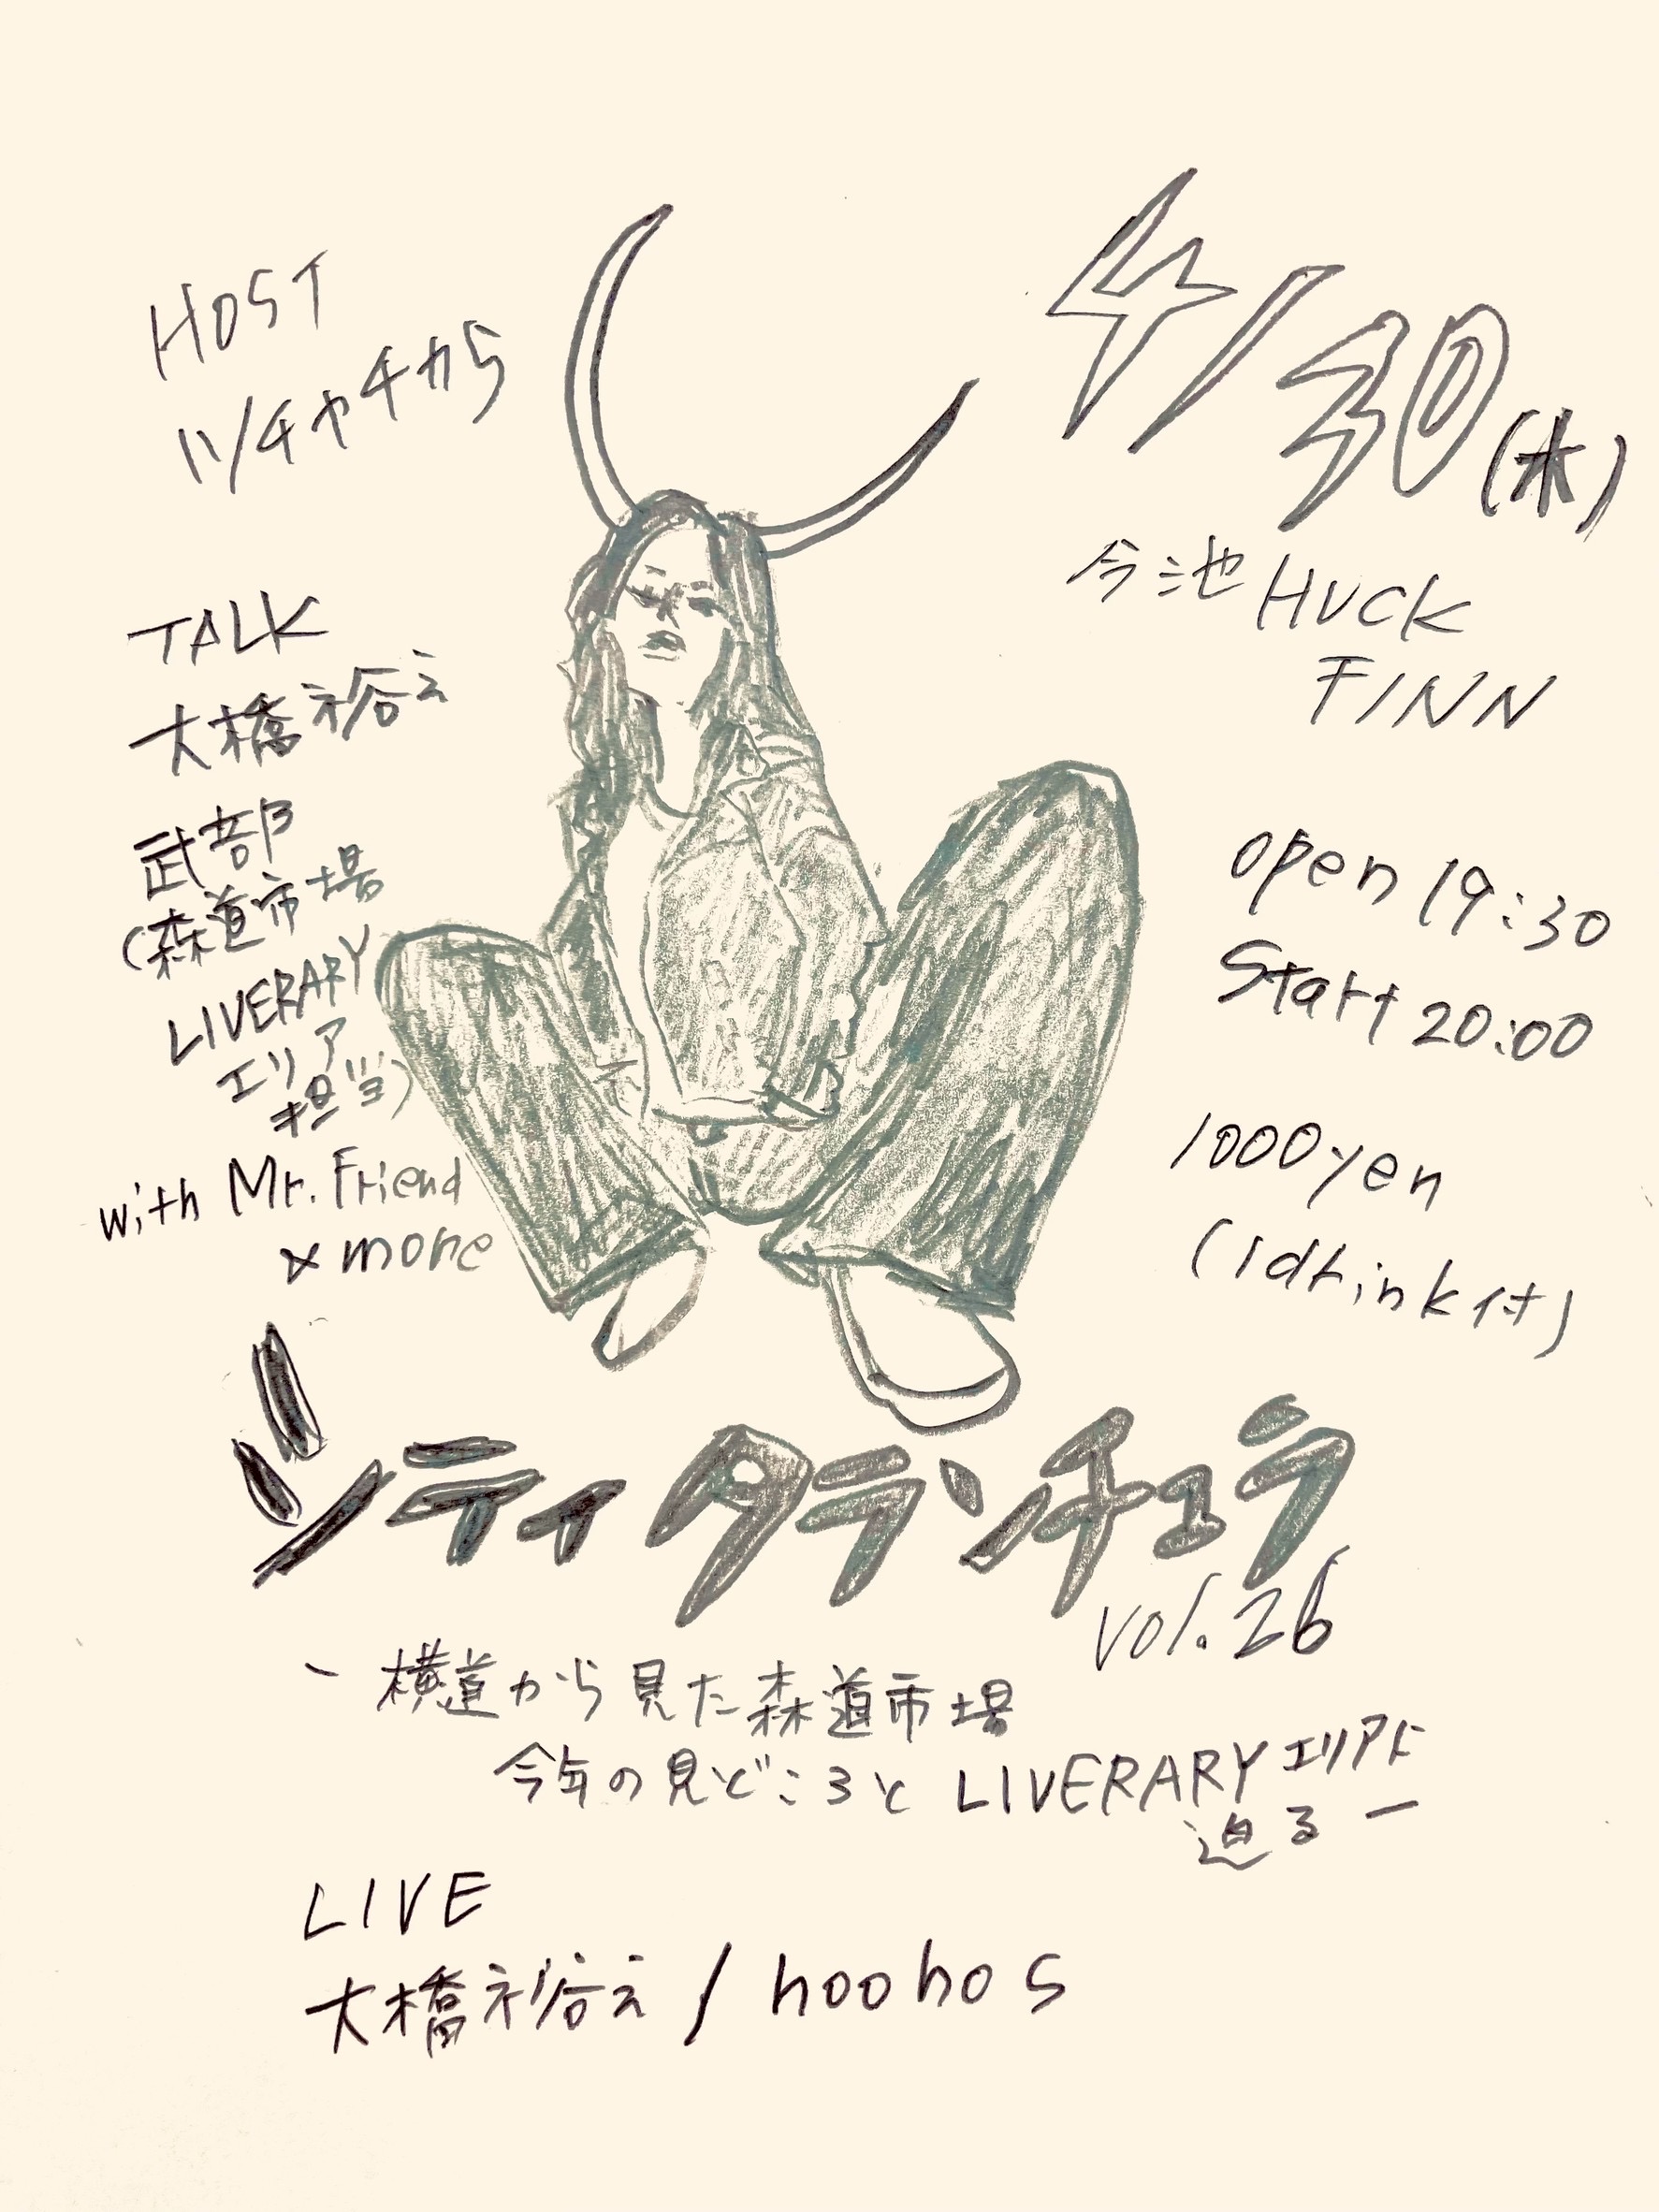 HOST
ツチヤチカら
4/30(水)
今池 HUCK
FINN
TALK
大橋裕之
武部
(森道市場
LIVERARY
エリア
担当)
with Mr. Friend
& more
open 19:30
Start 20:00
1000yen
(1drink付)
シティタランチュラ
vol.26
ー横道から見た森道市場
今年の見どころと LIVERARYエリアに
迫るー
LIVE
大橋裕之 / hoohos